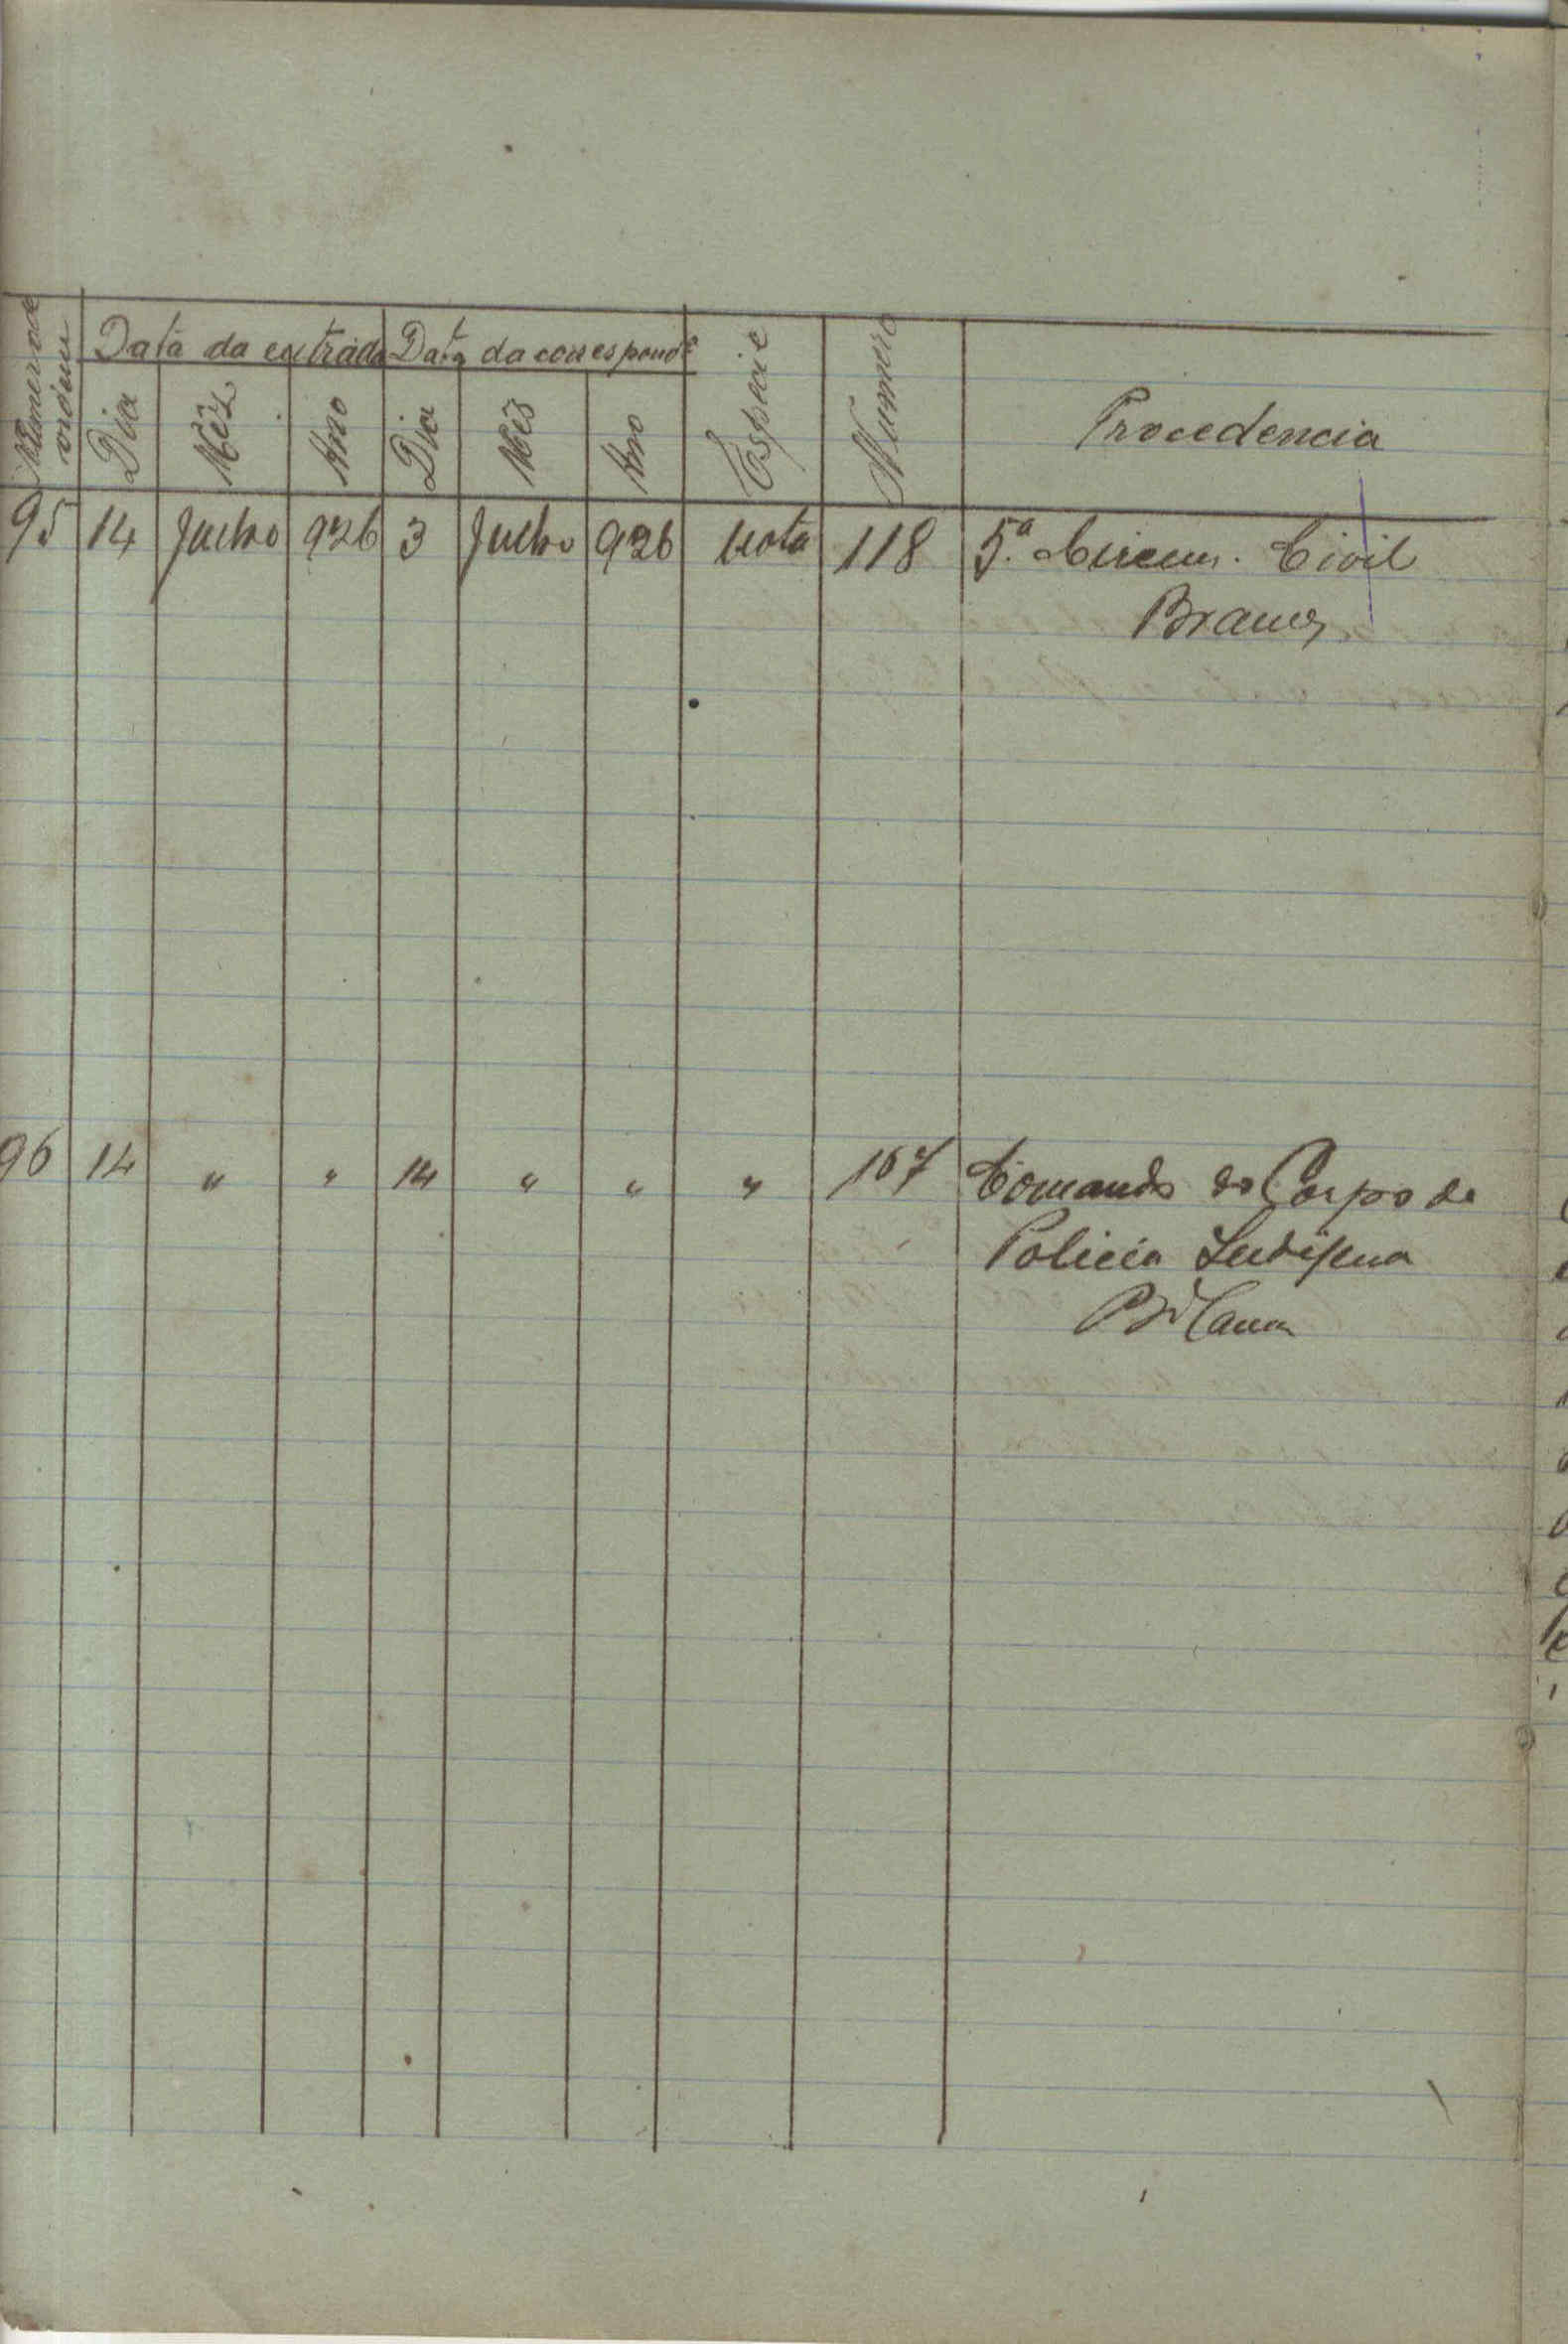 Numero de ordem
Data da entrada Data da correspond.ª
Dia Mês Ano Dia Mês Ano Especie Numero Procedencia
95 14 Julho 926 3 Julho 926 Nota 118 5.ª Circun. Civil
96 14 " " 14 " " " 167 Comando do Corpo de
Policia Indigena